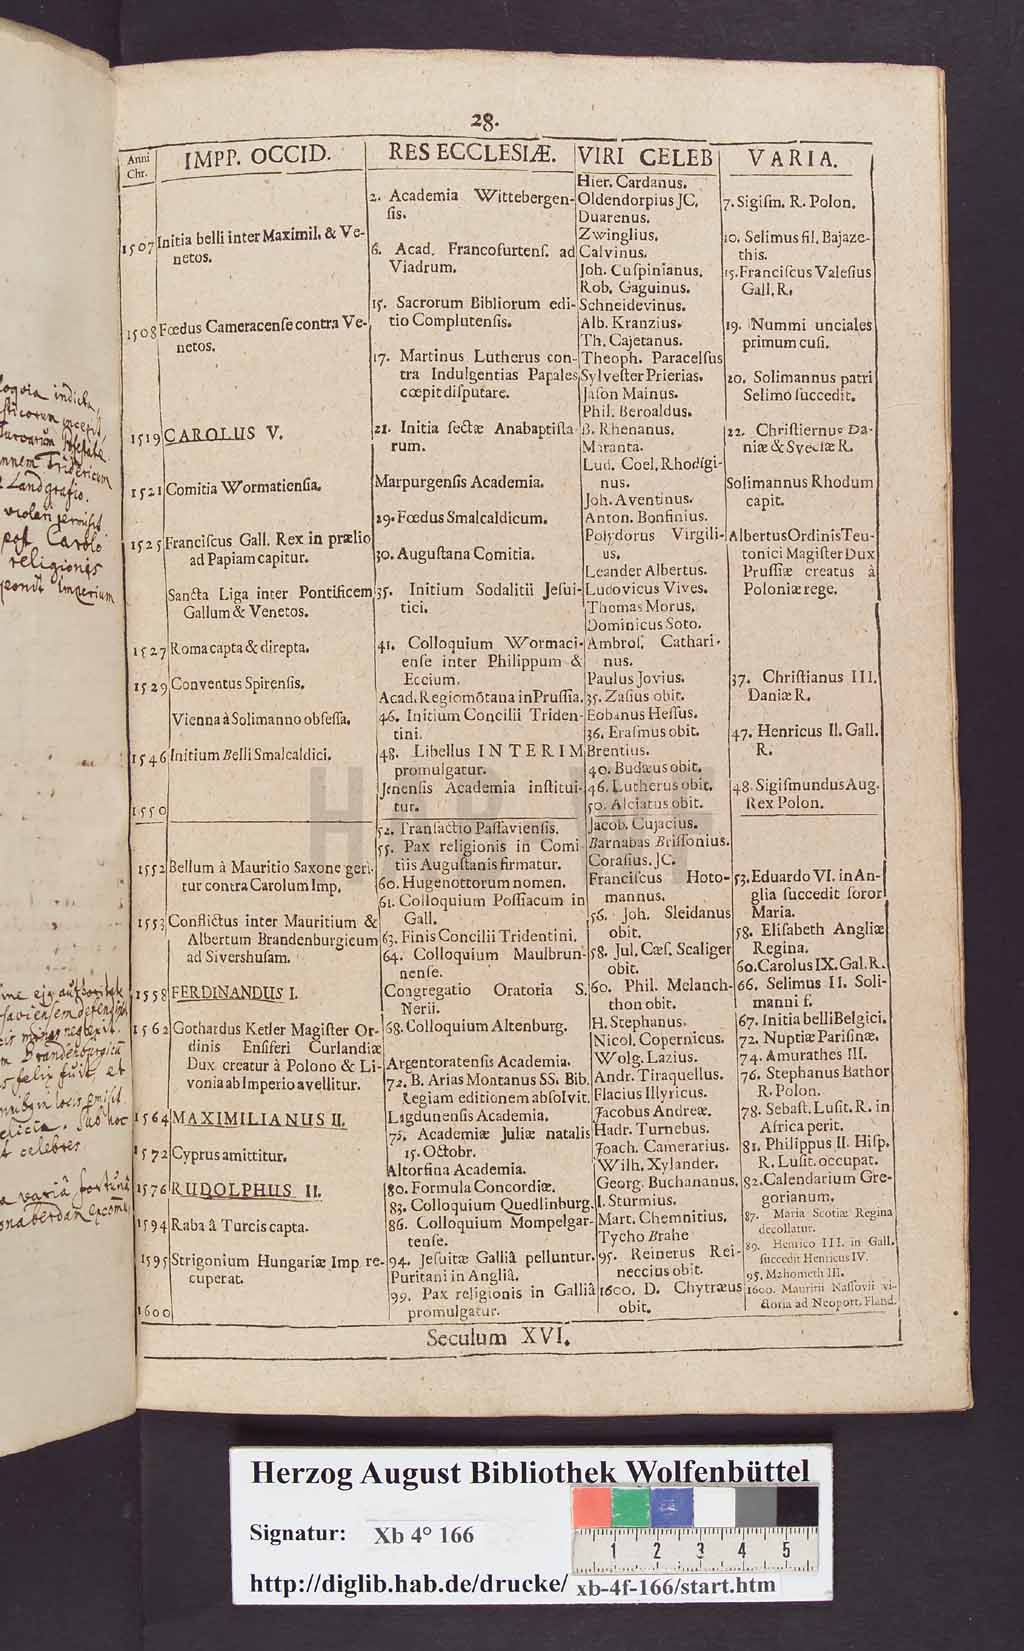 28.
Anni
Chr.
IMPP. OCCID.
1507 Initia belli inter Maximil. & Ve-
netos.
1508 Fœdus Cameracenſe contra Ve-
netos.
1519 CAROLUS V.
1521 Comitia Wormatienſia.
1525 Franciſcus Gall. Rex in prælio
ad Papiam capitur.
Sancta Liga inter Pontificem
Gallum & Venetos.
1527 Roma capta & direpta.
1529 Conventus Spirenſis.
Vienna à Solimanno obſeſſa.
1546 Initium Belli Smalcaldici.
1550
1552 Bellum à Mauritio Saxone geri-
tur contra Carolum Imp.
1553 Conflictus inter Mauritium &
Albertum Brandenburgicum
ad Sivershuſam.
1558 FERDINANDUS I.
1562 Gothardus Ketler Magiſter Or-
dinis Enſiferi Curlandiæ
Dux creatur à Polono & Li-
vonia ab Imperio avellitur.
1564 MAXIMILIANUS II.
1572 Cyprus amittitur.
1576 RUDOLPHUS II.
1594 Raba â Turcis capta.
1595 Strigonium Hungariæ Imp. re-
cuperat.
1600
RES ECCLESIÆ.
2. Academia Wittebergen-
ſis.
6. Acad. Francofurtenſ. ad
Viadrum.
15. Sacrorum Bibliorum edi-
tio Complutenſis.
17. Martinus Lutherus con-
tra Indulgentias Papales
cœpit diſputare.
21. Initia ſectæ Anabaptiſta-
rum.
Marpurgenſis Academia.
29. Fœdus Smalcaldicum.
30. Auguſtana Comitia.
35. Initium Sodalitii Jeſui-
tici.
41. Colloquium Wormaci-
enſe inter Philippum &
Eccium.
Acad. Regiomōtana in Pruſſia.
46. Initium Concilii Triden-
tini.
48. Libellus INTERIM
promulgatur.
Jenenſis Academia inſtitui-
tur.
52. Tranſactio Paſſavienſis.
55. Pax religionis in Comi-
tiis Auguſtanis firmatur.
60. Hugenottorum nomen.
61. Colloquium Poſſiacum in
Gall.
63. Finis Concilii Tridentini.
64. Colloquium Maulbrun-
nenſe.
Congregatio Oratoria S.
Nerii.
68. Colloquium Altenburg.
Argentoratenſis Academia.
72. B. Arias Montanus SS. Bib.
Regiam editionem abſolvit.
Lugdunenſis Academia.
75. Academiæ Juliæ natalis
15. Octobr.
Altorfina Academia.
80. Formula Concordiæ.
83. Colloquium Quedlinburg.
86. Colloquium Mompelgar-
tenſe.
94. Jeſuitæ Galliâ pelluntur.
Puritani in Angliâ.
99. Pax religionis in Galliâ
promulgatur.
VIRI CELEB
Hier. Cardanus.
Oldendorpius JC.
Duarenus.
Zwinglius.
Calvinus.
Joh. Cuſpinianus.
Rob. Gaguinus.
Schneidevinus.
Alb. Kranzius.
Th. Cajetanus.
Theoph. Paracelſus
Sylveſter Prierias.
Jaſon Mainus.
Phil. Beroaldus.
B. Rhenanus.
Maranta.
Lud. Coel. Rhodigi-
nus.
Joh. Aventinus.
Anton. Bonfinius.
Polydorus Virgili-
us.
Leander Albertus.
Ludovicus Vives.
Thomas Morus.
Dominicus Soto.
Ambroſ. Cathari-
nus.
Paulus Jovius.
35. Zaſius obit.
Eobanus Heſſus.
36. Eraſmus obit.
Brentius.
40. Budæus obit.
46. Lutherus obit.
50. Alciatus obit.
Jacob. Cujacius.
Barnabas Briſſonius.
Coraſius. JC.
Franciſcus Hoto-
mannus.
56. Joh. Sleidanus
obit.
58. Jul. Cæſ. Scaliger
obit.
60. Phil. Melanch-
thon obit.
H. Stephanus.
Nicol. Copernicus.
Wolg. Lazius.
Andr. Tiraquellus.
Flacius Illyricus.
Jacobus Andreæ.
Hadr. Turnebus.
Joach. Camerarius.
Wilh. Xylander.
Georg. Buchananus.
I. Sturmius.
Mart. Chemnitius.
Tycho Brahe
95. Reinerus Rei-
neccius obit.
1600. D. Chytræus
obit.
VARIA.
7. Sigiſm. R. Polon.
10. Selimus fil. Bajaze-
this.
15. Franciſcus Valeſius
Gall. R.
19. Nummi unciales
primum cuſi.
20. Solimannus patri
Selimo ſuccedit.
22. Chriſtiernus Da-
niæ & Sveciæ R.
Solimannus Rhodum
capit.
Albertus Ordinis Teu-
tonici Magiſter Dux
Pruſſiæ creatus à
Poloniæ rege.
37. Chriſtianus III.
Daniæ R.
47. Henricus II. Gall.
R.
48. Sigiſmundus Aug.
Rex Polon.
53. Eduardo VI. in An-
glia ſuccedit ſoror
Maria.
58. Eliſabeth Angliæ
Regina.
60. Carolus IX. Gal. R.
66. Selimus II. Soli-
manni f.
67. Initia belli Belgici.
72. Nuptiæ Pariſinæ.
74. Amurathes III.
76. Stephanus Bathor
R. Polon.
78. Sebaſt. Luſit. R. in
Africa perit.
81. Philippus II. Hiſp.
R. Luſit. occupat.
82. Calendarium Gre-
gorianum.
87. Maria Scotiæ Regina
decollatur.
89. Henrico III. in Gall.
ſuccedit Henricus IV.
95. Mahometh III.
1600. Mauritii Naſſovii vi-
ctoria ad Neoport. Fland.
Seculum XVI.
HAB
Herzog August Bibliothek Wolfenbüttel
Signatur: Xb 4° 166
1 2 3 4 5
http://diglib.hab.de/drucke/ xb-4f-166/start.htm